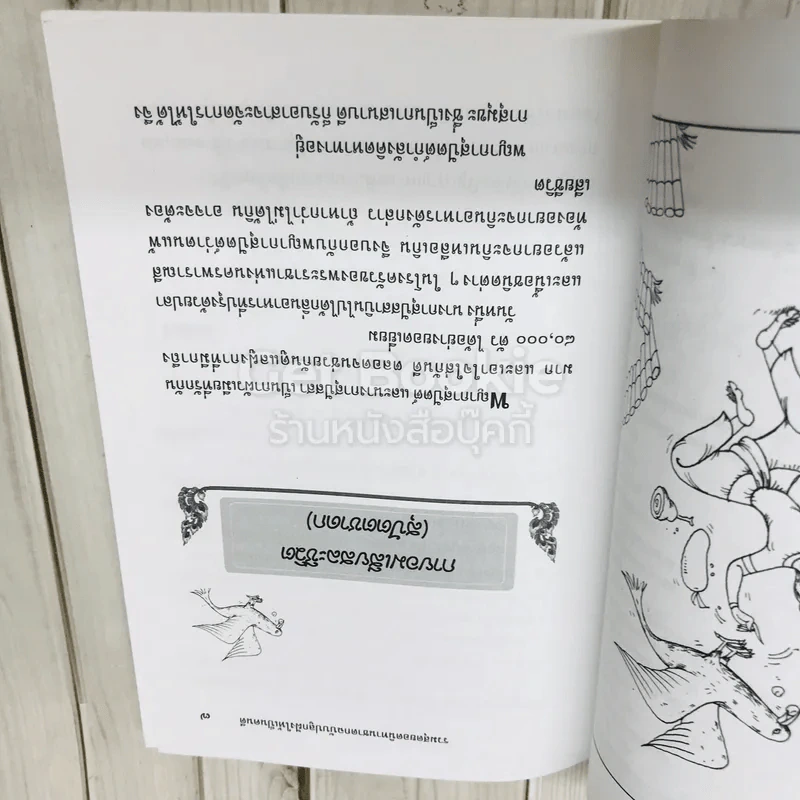 รวมสุดยอดนิทานชาดกฉบับปลูกฝังให้เป็นคนดี ๗
กายอมเสียสละชีวิต
(สุปัตตชาดก)
พญากาสุปัตต์ และนางกาสุปัสสา เป็นกาผัวเมียที่รักกัน
มาก และเอาใจใส่กันดี ตลอดจนช่วยกันดูแลฝูงกาที่มีมากถึง
๘๐,๐๐๐ ตัว ได้อย่างยอดเยี่ยม
วันหนึ่ง นางกาสุปัสสาบินไปได้กลิ่นอาหารที่ปรุงด้วยปลา
และเนื้อชนิดต่างๆ ในโรงครัวของพระราชาแห่งนครพาราณสี
แล้วอยากจะกินเหลือเกิน จึงบอกกับพญากาสุปัตต์ว่าตนแพ้
ท้องอยากจะกินอาหารดังกล่าว ถ้าหากว่าไม่ได้กิน อาจจะต้อง
เสียชีวิต
พญากาสุปัตต์กำลังคิดหาทางอยู่
กาสุมุขะ ซึ่งเป็นกาเสนาบดี ก็รับอาสาจะจัดการให้ได้ จึง
Get Bookie
ร้านหนังสือบุ๊คกี้